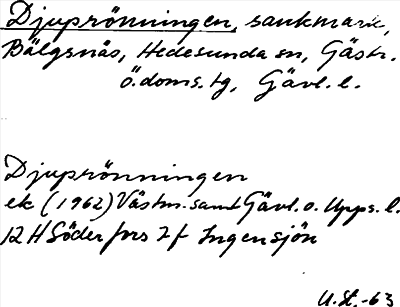 Djuprönningen, sankmark,
Bälgsnäs, Hedesunda sn, Gästr.
Ö.doms.tg, Gävl. l.
Djuprönningen
ek (1962) Västm. samt Gävl. o. Upps. l.
12 H Söderfors 7 f Ingensjön
U. St. -63